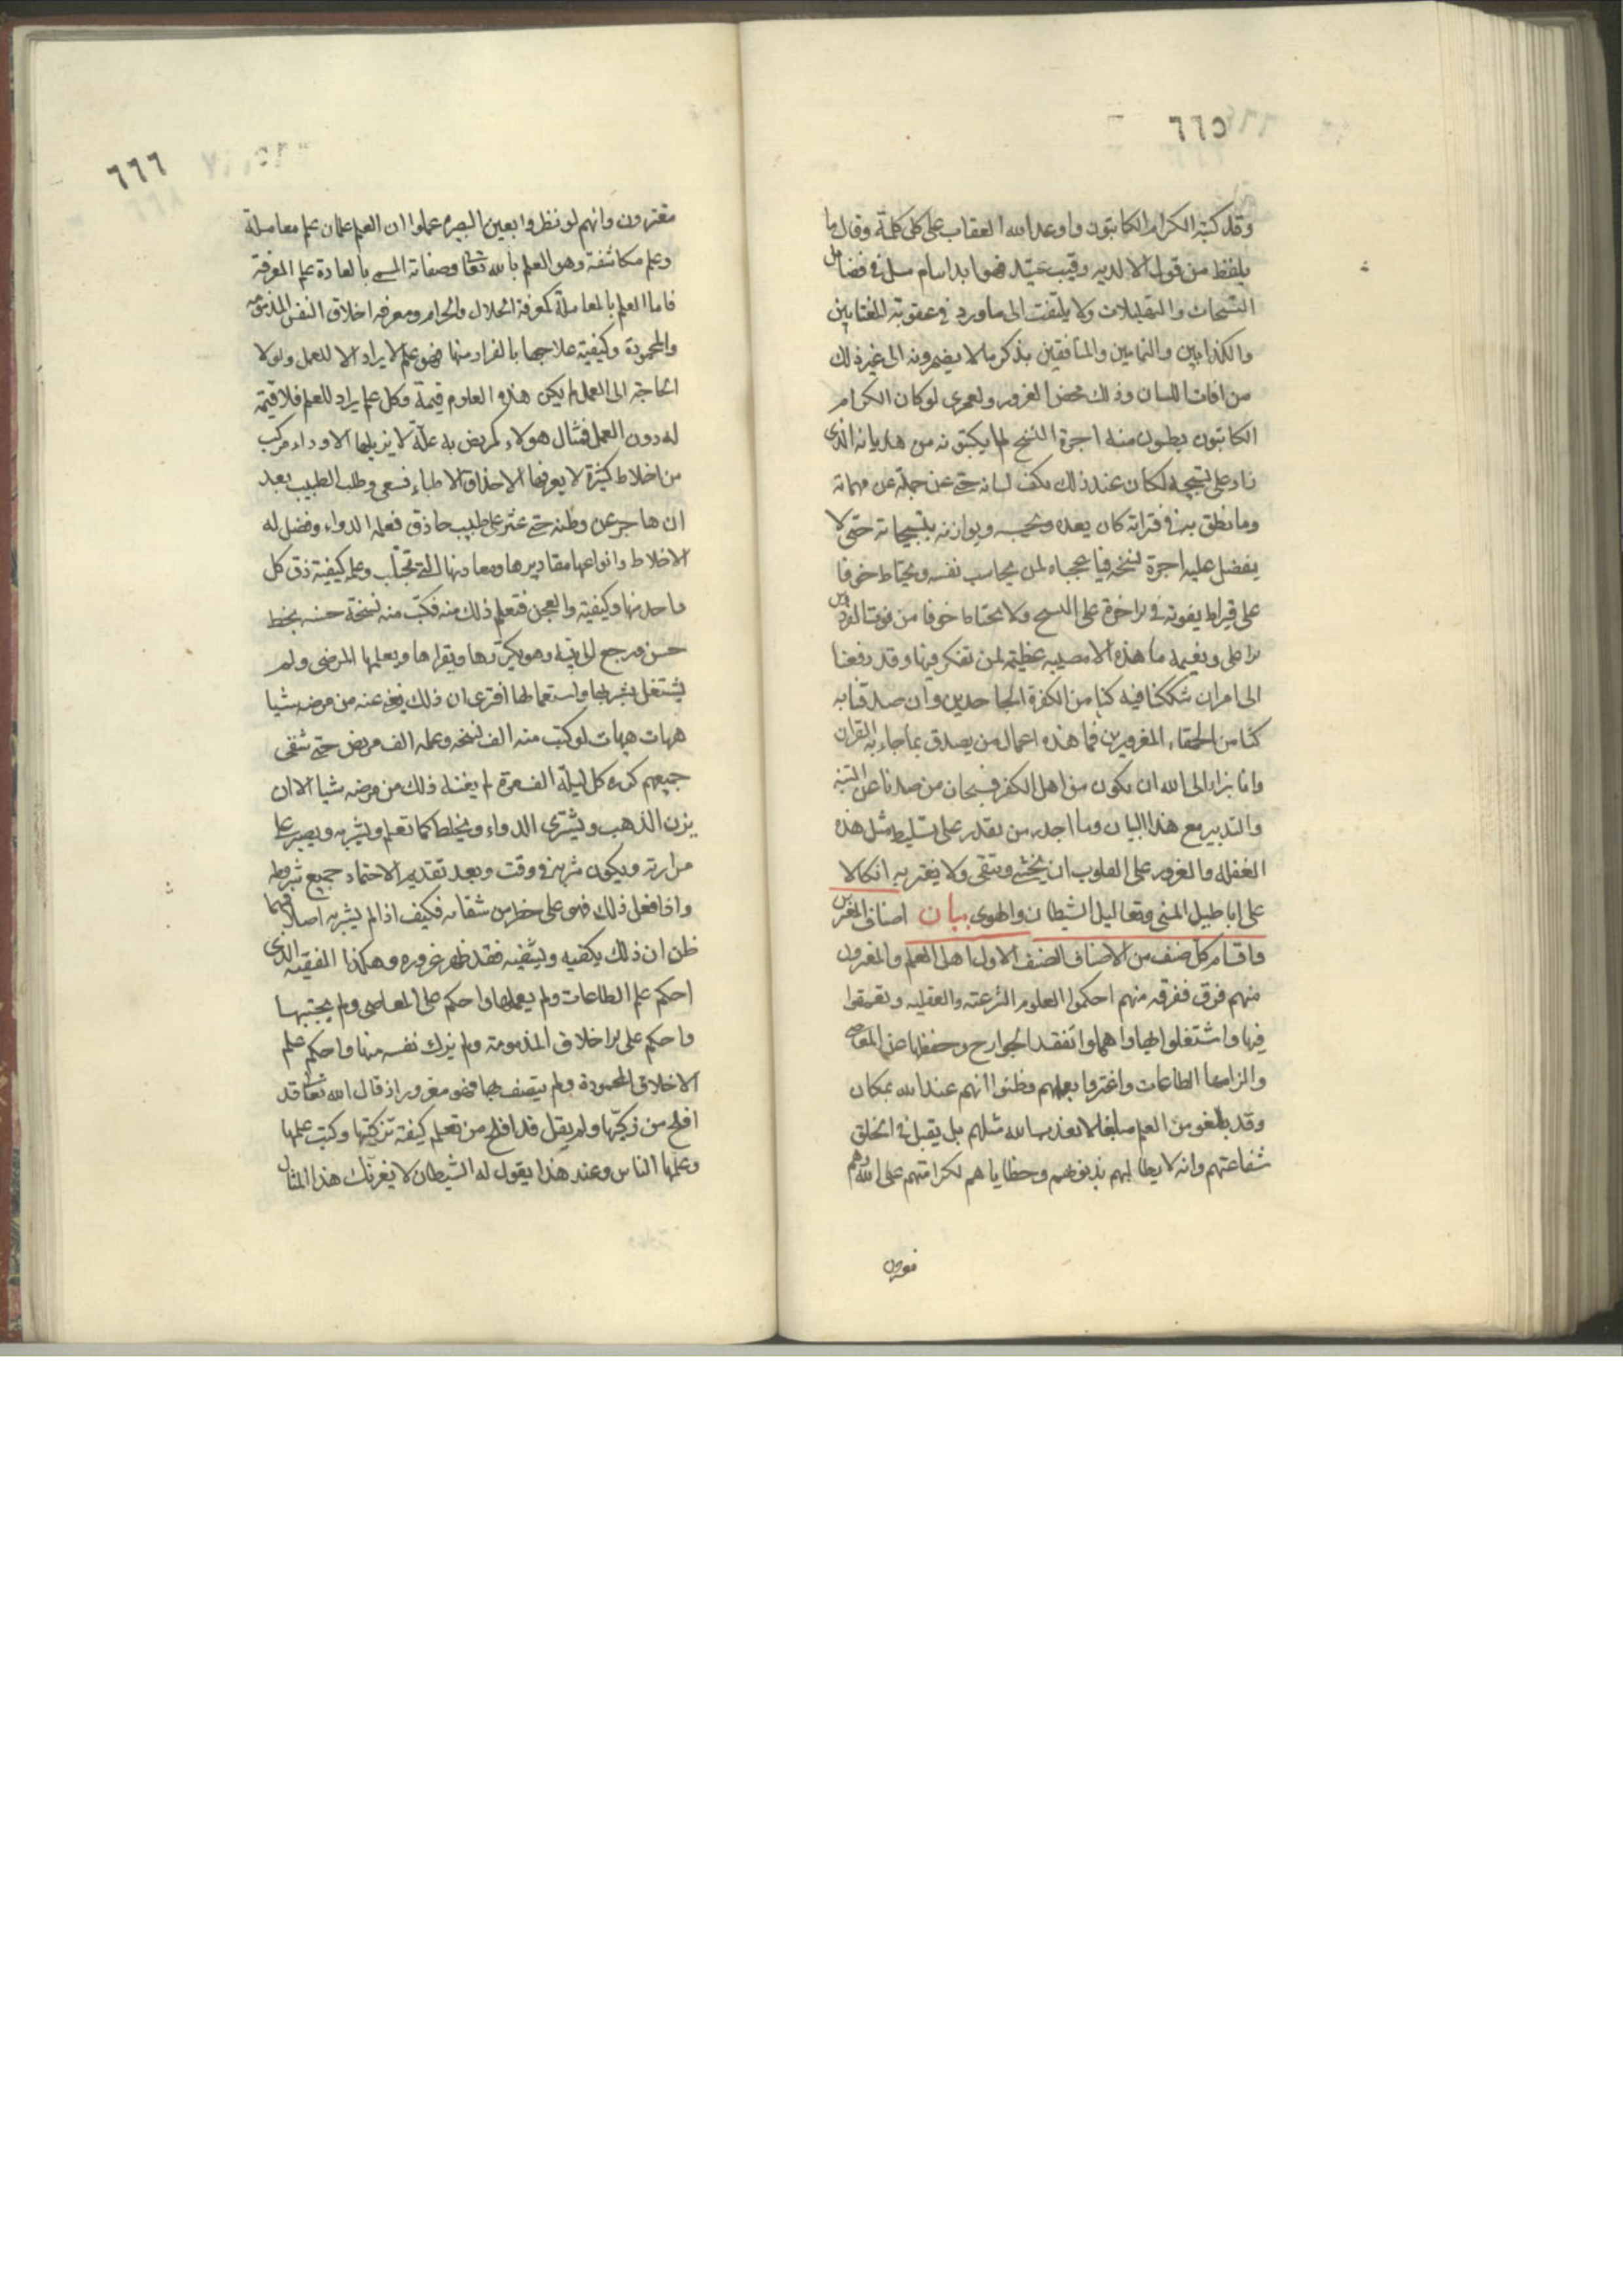 ٦٦٥
وقد كتبه الكرام الكاتبون واوعد الله العقاب على كل كلمة وقال ما
يلفظ من قول الا لديه رقيب عتيد فهو ابدا يتامل في فضائل
التسبيحات والتهليلات ولا يلتفت الى ما ورد في عقوبة المغتابين
والكذابين والنمامين والمنافقين بذكر ما لا يضمرونه الى غير ذلك
من افات اللسان وذلك محض الغرور ولعمرى لو كان الكرام
الكاتبون يطلبون منه اجرة النسخ لما يكتبونه من هذيانه الذى
زاد على تسبيحه لكان عند ذلك يكف لسانه حتى عن جملة من مهماته
وما نطق به في فتراته كان يعده ويحسبه ويوازنه بتسبيحاته حتى لا
يفضل عليه اجرة نسخه فيا عجباه لمن يحاسب نفسه ويحتاط خوفا
على قيراط يفوته في الاخرة على النسخ ولا يحتاط خوفا من فوت الفردوس
الاعلى ونعيمه ما هذه الا مصيبة عظيمة لمن تفكر فيها وقد دفعنا
الى امر ان شككنا فيه كنا من الكفرة الجاحدين وان صدقنا به
كنا من الحمقاء المغرورين فما هذه اعمال من يصدق بما جاء به القران
وانا نبرا الى الله ان نكون من اهل الكفر فسبحان من صدنا عن التنبه
والتدبير مع هذا البيان وما اجدر من يقدر على تسليط مثل هذه
الغفلة والغرور على القلوب ان يخشى ويتقى ولا يغتر به اتكالا
على اباطيل المنى وتعاليل الشيطان والهوى بيان اصناف المغترين
واقسام كل صنف من الاصناف الصنف الاول اهل العلم والمغرون
منهم فرق ففرقه منهم احكموا العلوم الشرعيه والعقليه وتعمقوا
فيها واشتغلوا بها واهملوا تفقد الجوارح وحفظها عن المعاصى
والزامها الطاعات واغتروا بعلمهم وظنوا انهم عند الله بمكان
وقد بلغو من العلم مبلغا لا يعذب الله مثلهم بل يقبل في الخلق
شفاعتهم وانه لا يطالبهم بذنوبهم وخطاياهم لكرامتهم على الله وهم
مغرون
٦٦٦
مغترون وانهم لو نظروا بعين البصيرة علموا ان العلم علمان علم معاملة
وعلم مكاشفة وهو العلم بالله تعا وصفاته المسمى بالعادة علم المعرفة
فاما العلم بالمعاملة كمعرفة الحلال والحرام ومعرفه اخلاق النفس المذمومة
والمحمودة وكيفية علاجها بالفرار منها فهو علم لا يراد الا للعمل ولولا
الحاجة الى العمل لم يكن هذه العلوم قيمة وكل علم يراد للعمل فلا قيمة
له دون العمل فمثال هولاء كمريض به علة لا يزيلها الا دواء مركب
من اخلاط كثيرة لا يعرفها الا حذاق الاطباء فسعى وطلب الطبيب بعد
ان هاجر عن وطنه حتى عثر على طبيب حاذق فعلمه الدواء وفصل له
الاخلاط وانواعها مقاديرها ومعادنها التى تجتلب وعلمه كيفية دق كل
واحد منها وكيفية والعجن فتعلم ذلك منه فكتب منه نسخة حسنه بخط
حسن ورجع الى بيته وهو يكررها ويقراها ويعلمها المرضى ولم
يشتغل بشربها واستعمالها افترى ان ذلك يغنى عنه من مرضه شيا
هيهات هيهات لو كتب منه الف نسخه وعلمه الف مريض حتى شفى
جميعهم كرره كل ليلة الف مرة لم يغنه ذلك من مرضه شيا الا ان
يزن الذهب ويشترى الدواء ويخلط كما تعلم ويشربه ويصبر على
مرارته ويكون شربه في وقت وبعد تقديم الاحتماء جميع شروطه
واذا فعل ذلك فهو على خطر من شفائه فكيف اذا لم يشربه اصلا فهما
ظن ان ذلك يكفيه ويشفيه فقد ظهر غروره وهكذا الفقيه الذى
احكم علم الطاعات ولم يعملها واحكم على المعاصى ولم يجتنبها
واحكم على الاخلاق المذمومة ولم يزك نفسه منها واحكم علم
الاخلاق المحمودة ولم يتصف بها فهو مغرور اذ قال الله تعا قد
افلح من زكيها ولم يقل قد افلح من تعلم كيفة تزكيتها وكتب علمها
وعلمها الناس وعند هذا يقول له الشيطان لا يغرنك هذا المثال